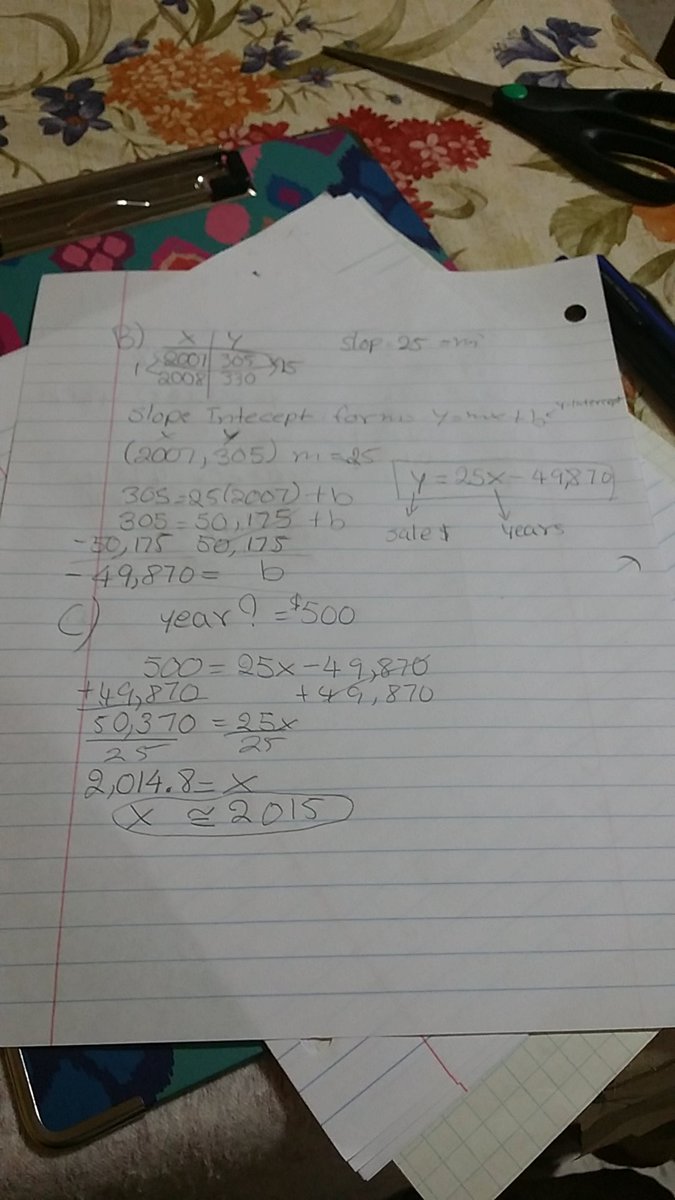 B) X | Y
Slop = 25 = m
1 2007 | 305 25
2008 | 330
Slope Intecept form = y = mx + b ← y-intercept
x y
(2007, 305) m = 25
305 = 25(2007) + b
y = 25x - 49,870
305 = 50,175 + b
sale $ years
- 50,175 50,175
- 49,870 = b
C) year? = $500
500 = 25x - 49,870
+49,870 +49,870
50,370 = 25x
25 25
2,014.8 = x
x ≅ 2015